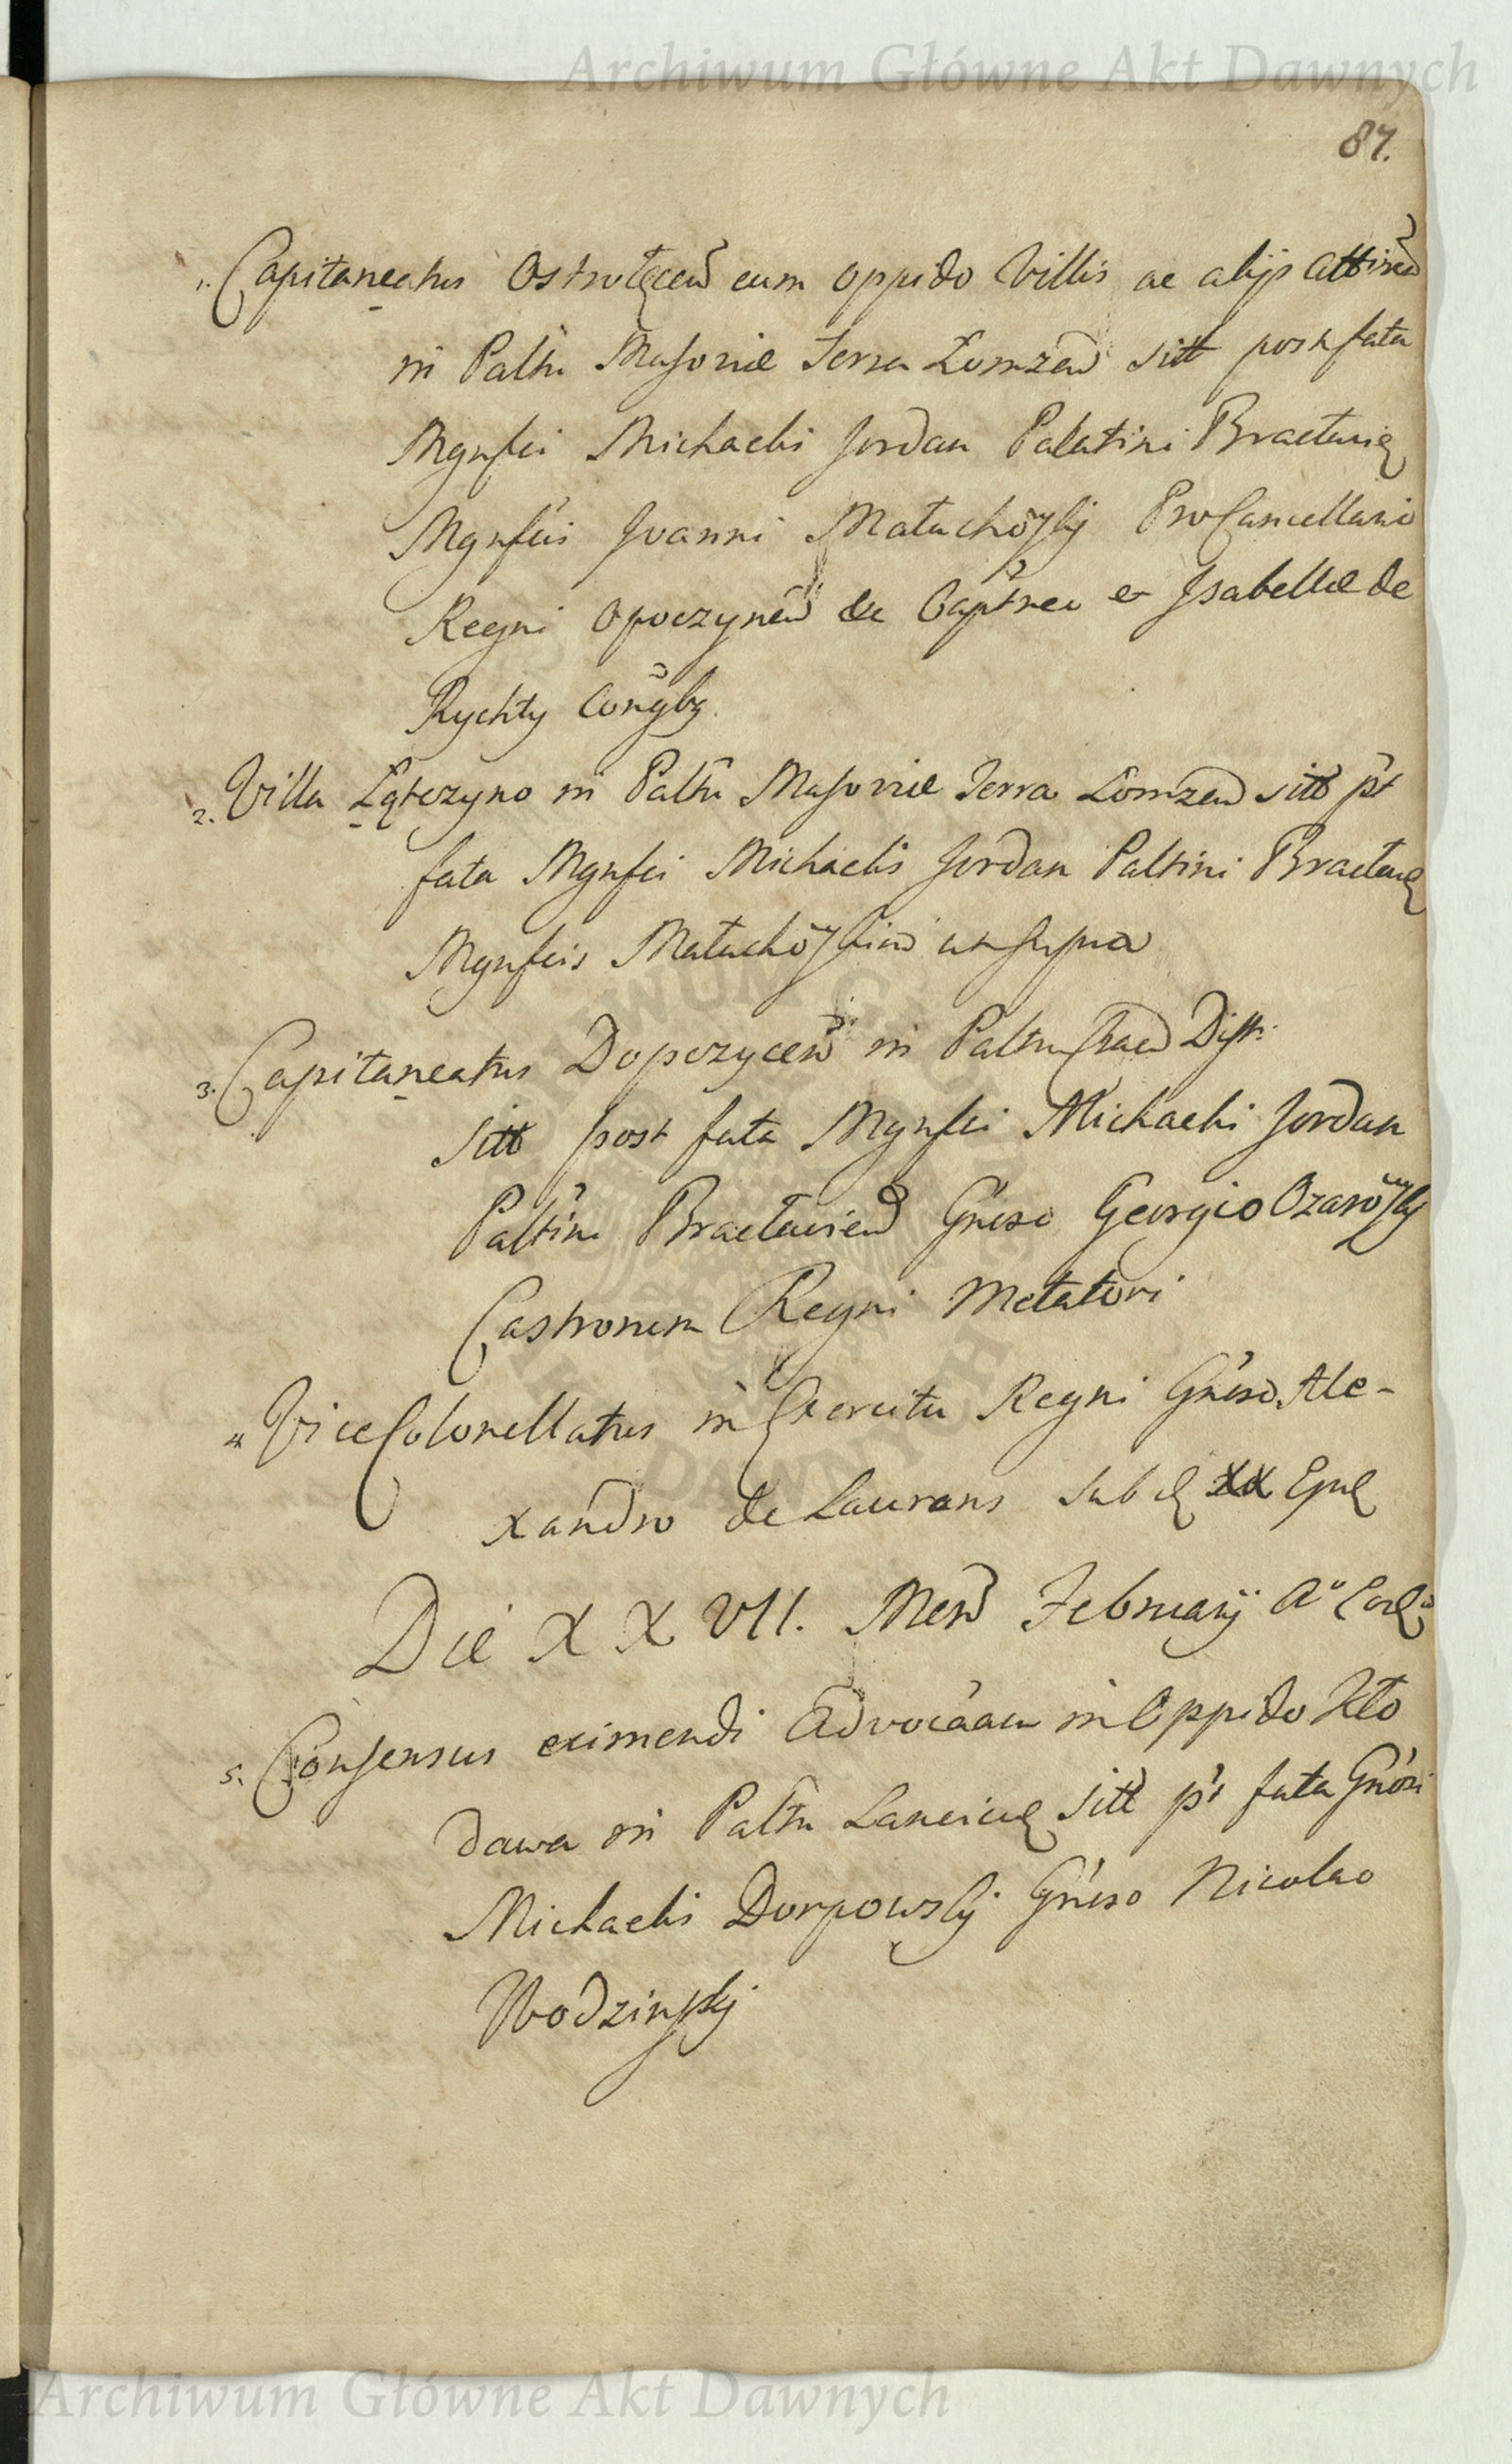 Archiwum Główne Akt Dawnych
87.
1. Capitaneatus Ostrołęcen̄ cum oppido Villis ac alijs Attinen̄
in Paltu Masoviæ Terra Łomzen̄ sitt post fata
Mgnfici Michaelis Jordan Palatini Bracłavię
Mgnficis Joanni Małachow̃skj ProCancellario
Regni Opoczynen̄ &c Captneo et Isabellæ de
Rychty Coñgbg.
2. Villa Łątczyno in Paltu Masoviæ Terra Łomzen̄ sitt p't
fata Mgnfici Michaelis Jordan Paltini Bracłavię
Mgnficis Małachow̃skim ut supra
3. Capitaneatus Dopczycen̄ in Paltu Crac̄ Distr:
sitt post fata Mgnfici Michaelis Jordan
Paltini Bracłavien̄ Gn̄eso Georgio Ozarow̃skj
Castrorum Regni Metatori
4. ViceColonellatus in Exercitu Regni Gn̄eso Ale-
xandro de Laurans XX
Die XXVII. Men̄ Februarij A° Eod:
5. Consensus eximendi Advocãam in Oppido Kło
dawa in Paltu Lancicię sitt p't fata Gn̄osi
Michaelis Dorpowskj Gn̄eso Nicolao
Wodzinskj
Archiwum Główne Akt Dawnych